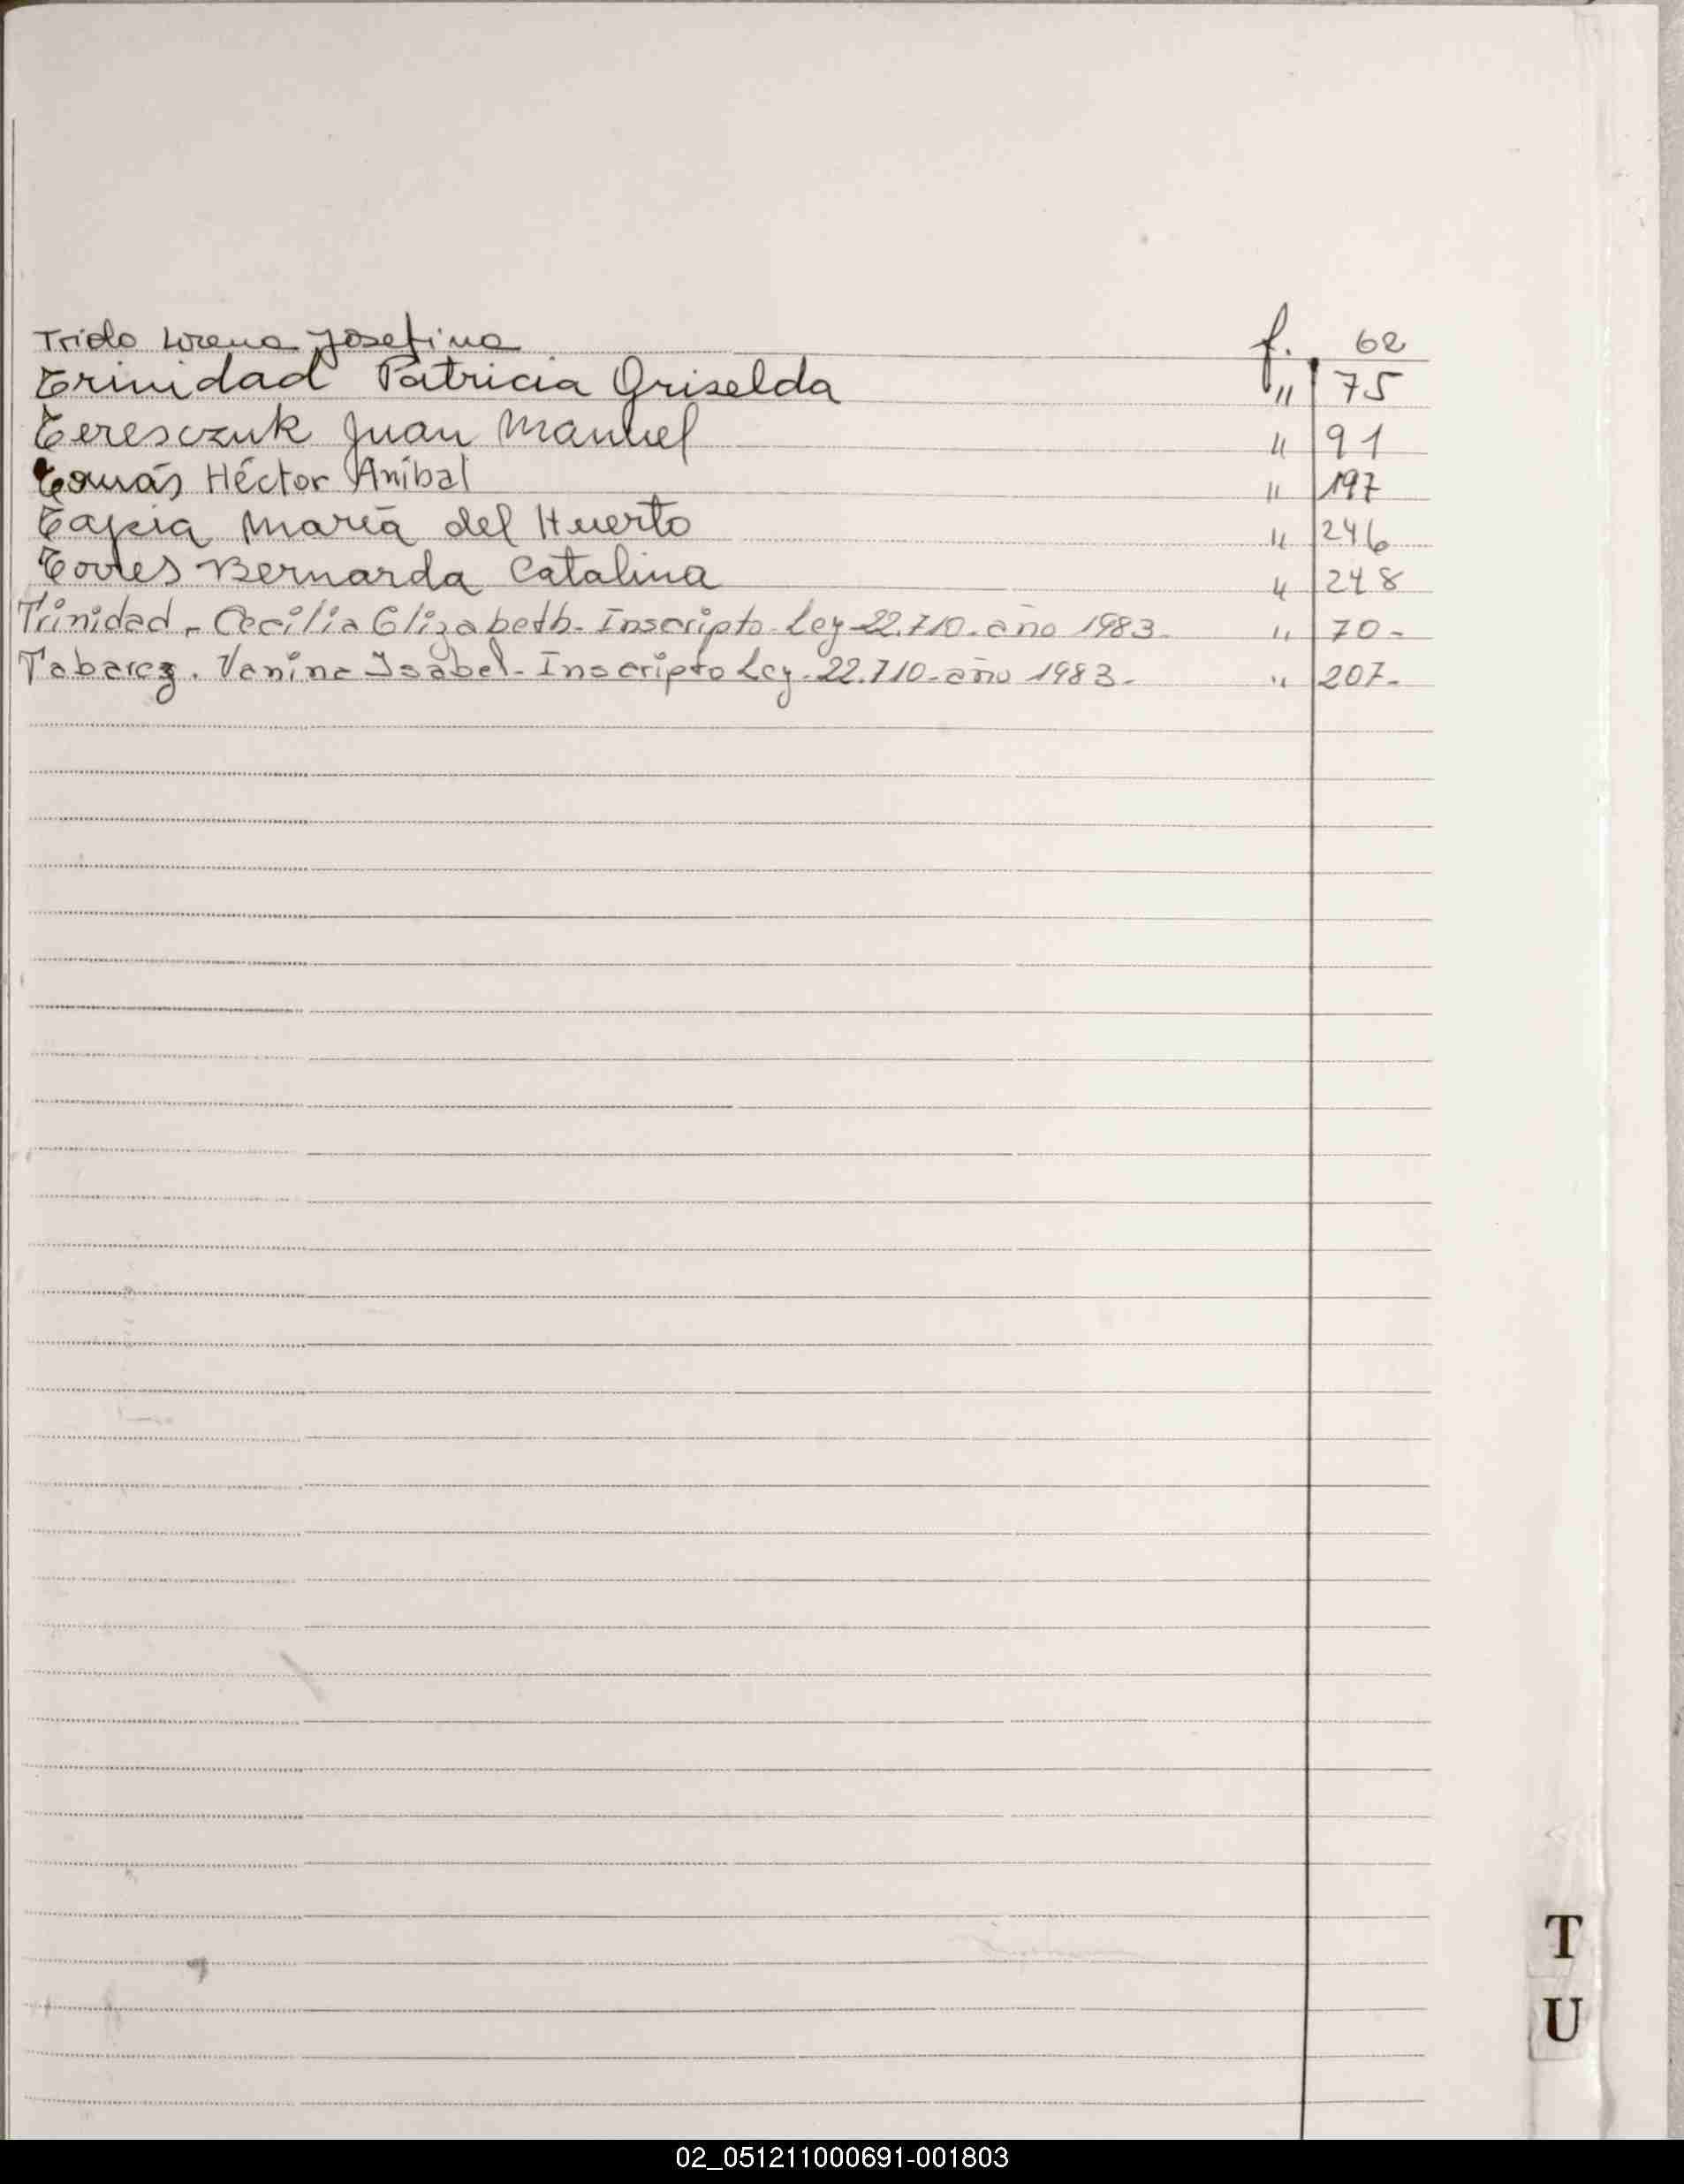 Trido Lorena Josefina f. 62
Trinidad Patricia Griselda " 75
Teresczuk Juan Manuel " 91
Tomás Héctor Aníbal " 197
Tapia María del Huerto " 246
Torres Bernarda Catalina " 248
Trinidad - Cecilia Elizabeth - Inscripto Ley 22.710 - año 1983 - " 70 -
Tabarez . Vanina Isabel - Inscripto Ley - 22.710 - año 1983 - " 207 -
T
U
02_051211000691-001803